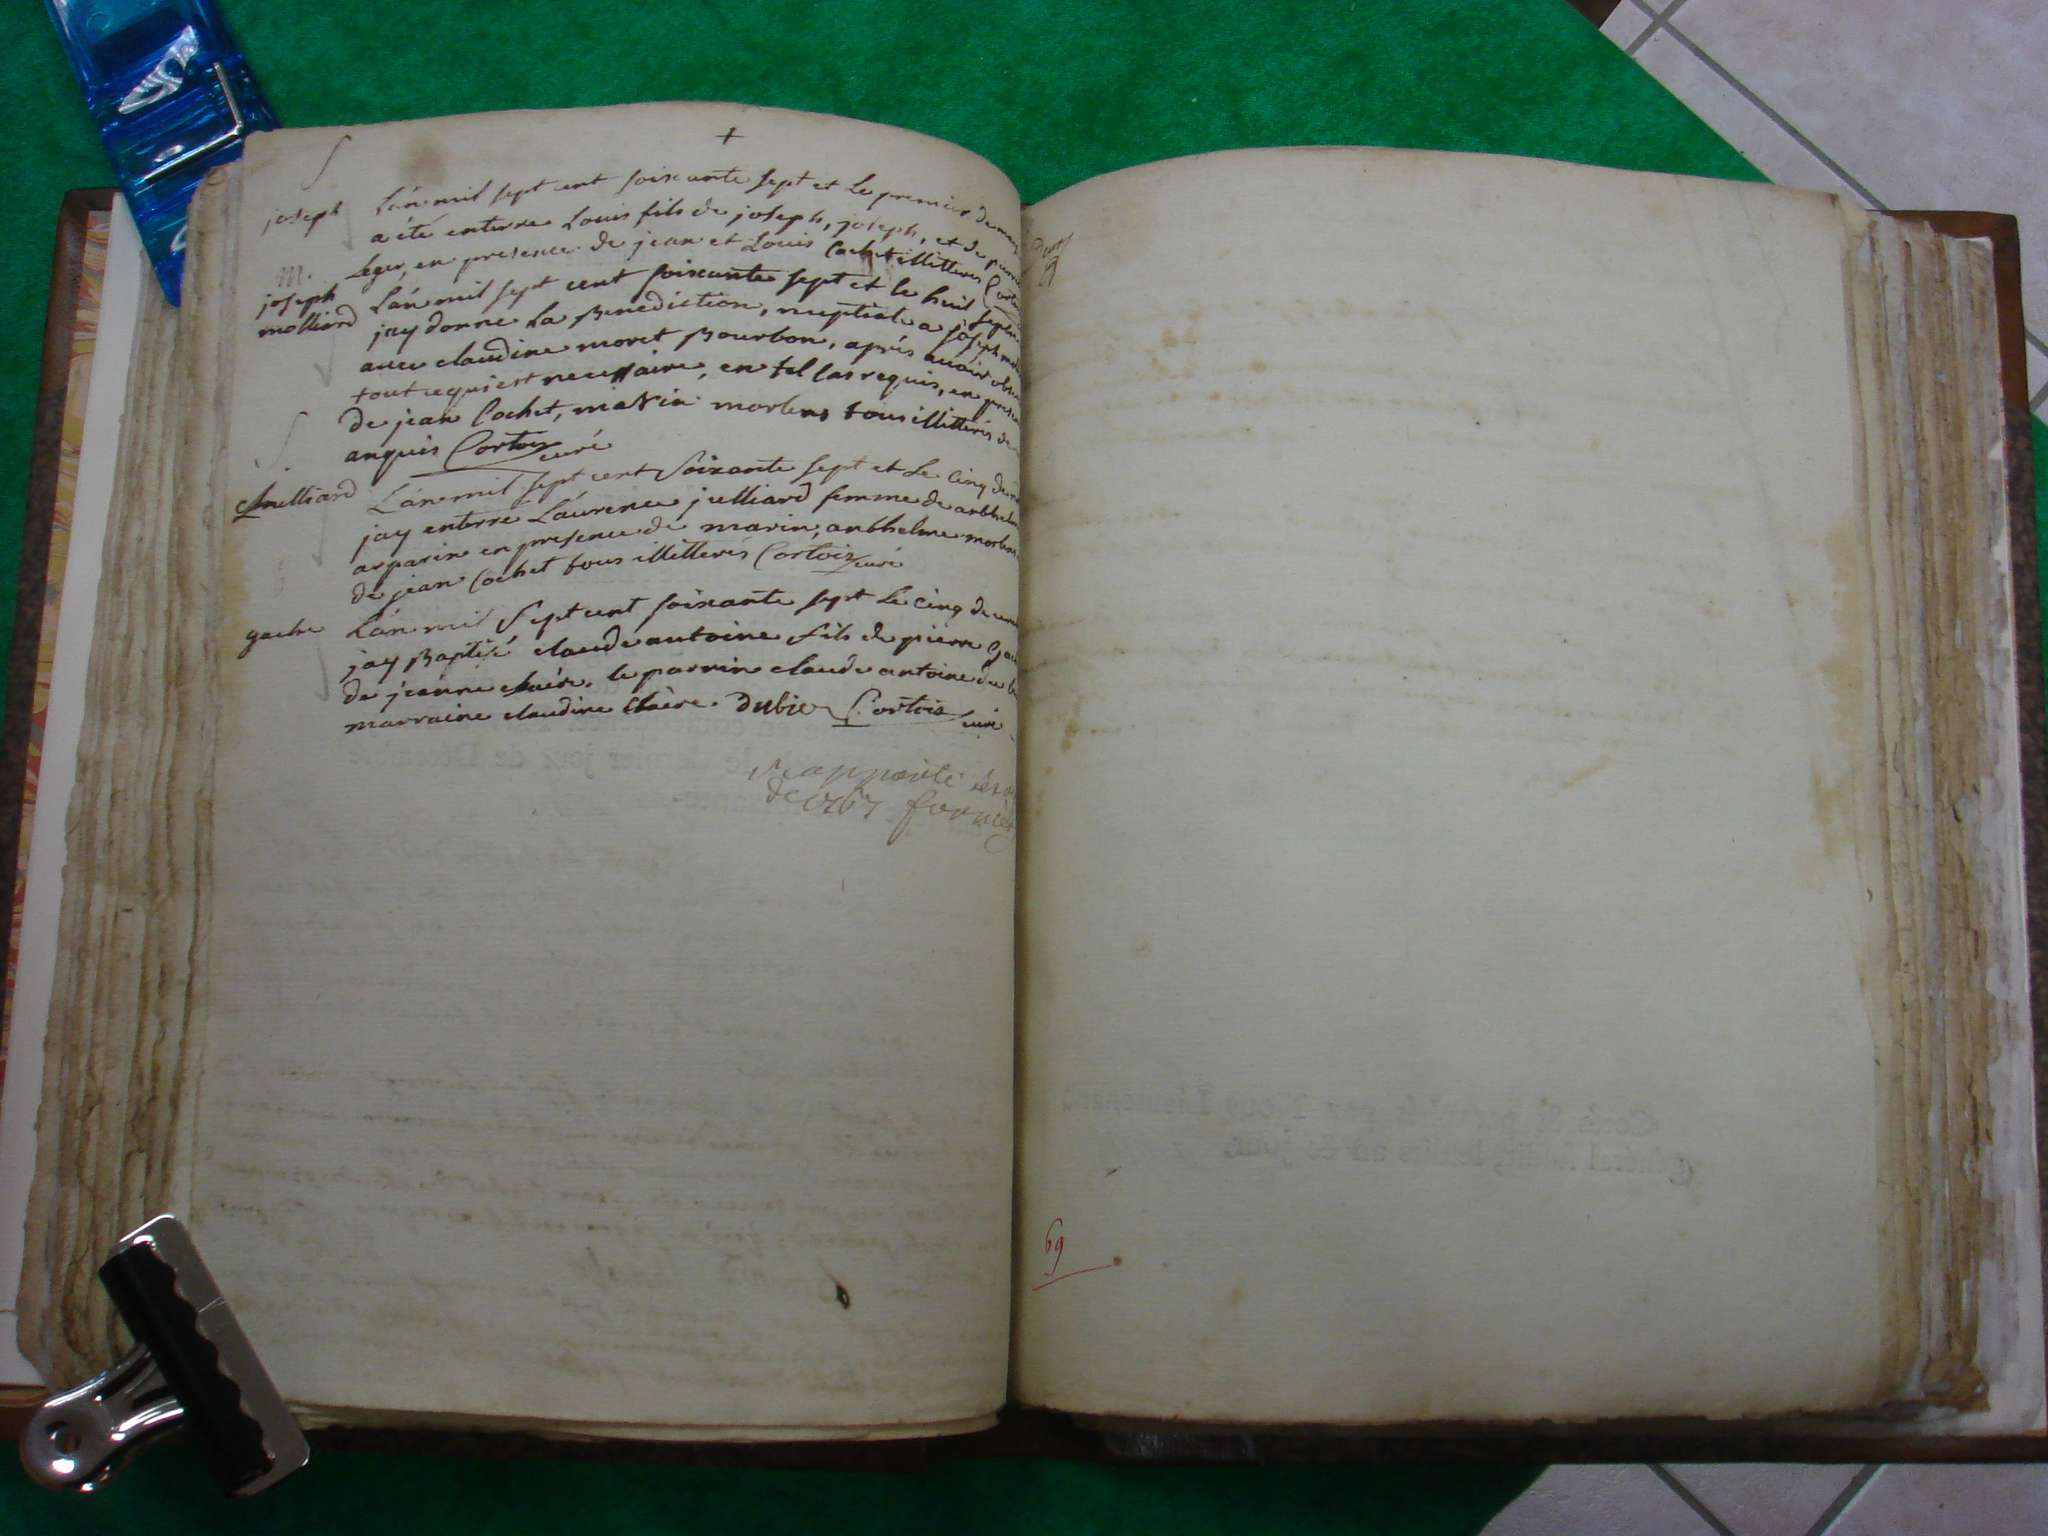 +
S
joseph
L'an mil sept cent soixante sept et le premier de mars
a été enterre Louis fils de joseph, joseph, et de pierre
Leger, en presence de jean et Louis Cochet illitteres
m.
joseph
molliard
L'an mil sept cent soixante sept et le huit
jay donne La Benediction, nuptiale a joseph
avec claudine moret Bourbon, aprés avoir
tout ce qui est necessaire, en tel cas requis, en
de jean Cochet, marin morlens tous illitterés de
anquis Cortois curé
S
Juilliard
L'an mil sept cent Soixante sept et Le cinq de
jay enterré Laurence juilliard femme de anthelme
arparin en presence de marin, anthelme morlens
de jean Cochet tous illitterés Cortois curé
gache
L'an mil Sept cent soixante sept Le cinq de
jay Baptisé claude antoine fils de pierre
de jeanne claire. le parrin claude antoine du
marraine claudine Claire. Dubie Cortois curé
Rapporté
de 1767
69